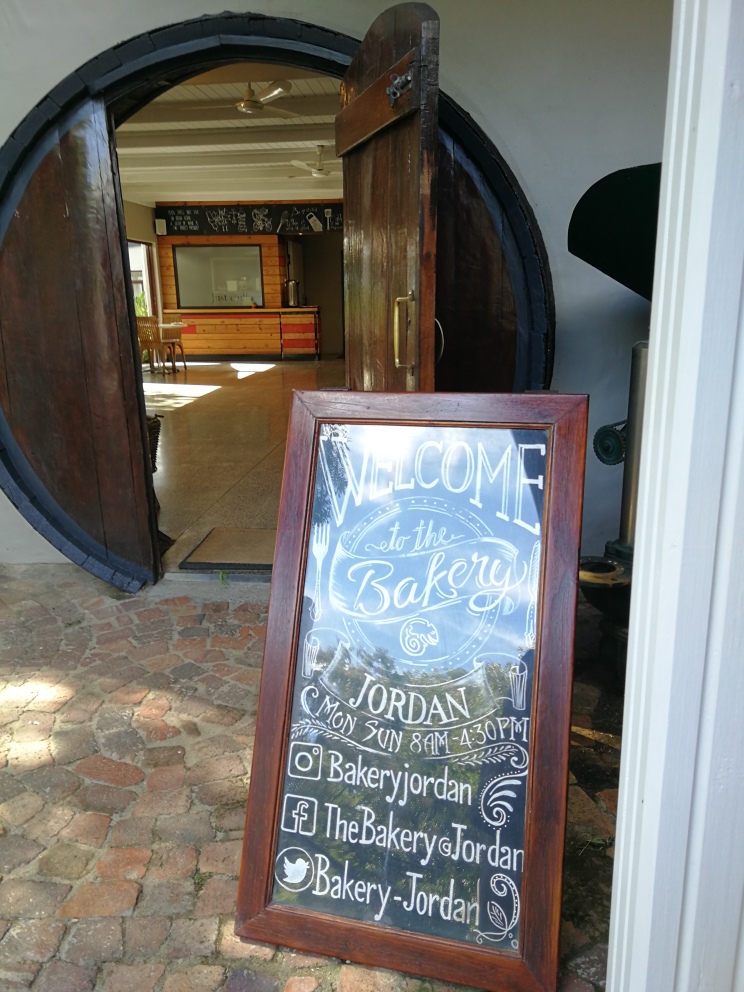 WELCOME
to the
Bakery
JORDAN
MON SUN 8AM-4:30PM
Bakeryjordan
TheBakery@Jordan
Bakery-Jordan